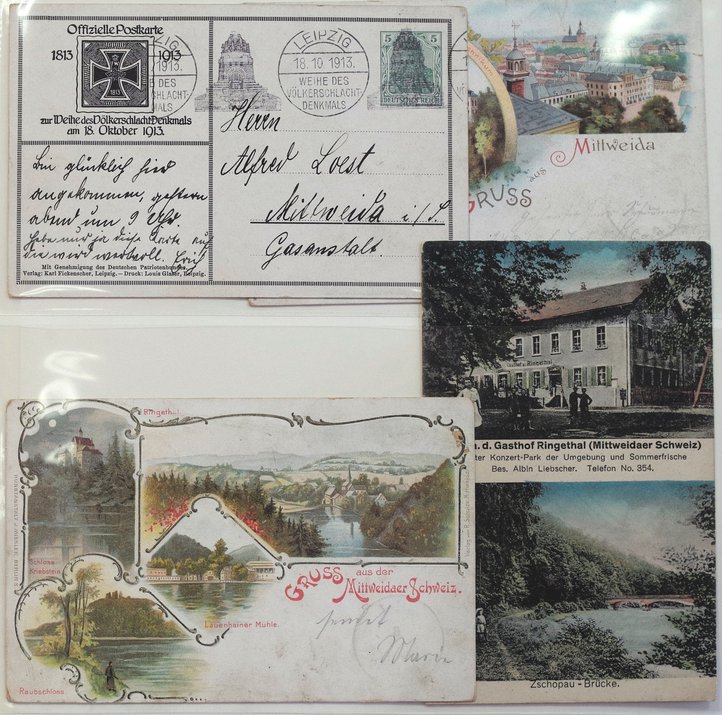 Offizielle Postkarte
1813 1913
1813
zur Weihe des Völkerschlacht Denkmals
am 18. Oktober 1913.
LEIPZIG
1913.
WEIHE DES
VÖLKERSCHLACHT-
DENKMALS
LEIPZIG
18.10 1913.
WEIHE DES
VÖLKERSCHLACHT-
DENKMALS
5 5
DEUTSCHES REICH
Herrn
Alfred Loest
Mittweida i/S.
Gasanstalt.
Bin glücklich hier
angekommen, gestern
abend um 9 Uhr.
Hebe nur ja diese Karte auf
wertvoll.
Mit Genehmigung des Deutschen Patriotenbundes
Verlag: Karl Fickenscher, Leipzig. – Druck: Louis Glaser, Leipzig.
GRUSS aus Mittweida
Gasthof Ringethal
d. Gasthof Ringethal (Mittweidaer Schweiz)
ter Konzert-Park der Umgebung und Sommerfrische
Bes. Albin Liebscher. Telefon No. 354.
Zschopau - Brücke.
Ringethal.
Schloss
Kriebstein.
Lauenhainer Mühle.
Raubschloss.
GRUSS aus der
Mittweidaer Schweiz.
sendet
Marie